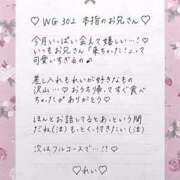 ♡ WG 302 本指のお兄さん ♡
今月いっぱい会えて嬉しい…♡
いつもお兄さん「来ちゃた!」って
可愛いすぎるの
差し入れもれいが好きなもの
沢山…♡おうち帰ってすぐ食べ
ちゃたがありがとう♡
ほんとお話してるとあっという間
だね(泣)もっとくってきたい(泣)
次はフルコースで…!!
♡れい♡